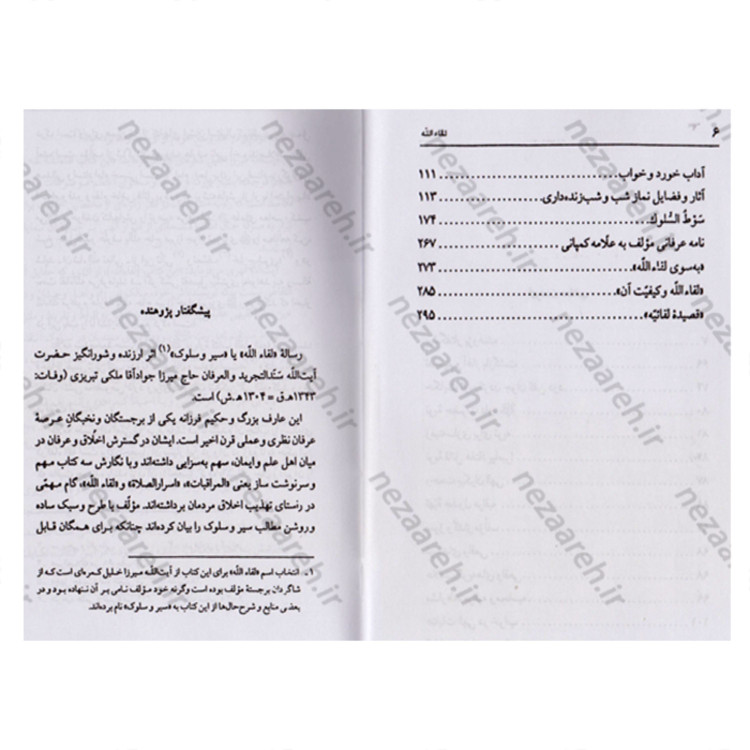 ۶
لقاءالله
آداب خورد و خواب ........ ۱۱۱
آثار و فضایل نماز شب و شب‌زنده‌داری ........ ۱۱۳
سَوْطُ السُّلوك ........ ۱۷۴
نامه عرفانی مؤلف به علّامه کمپانی ........ ۲۶۷
«به‌سوی لقاءالله» ........ ۲۷۳
«لقاءاللّه و کیفیّت آن» ........ ۲۸۵
«قصیدهٔ لقائیّه» ........ ۲۹۵
پیشگفتار پژوهنده
رسالهٔ «لقاء اللّه» یا «سیر و سلوک» (۱) اثر ارزنده و شورانگیز حضرت
آیت‌اللّه سَنَدُالتجرید و العرفان حاج میرزا جوادآقا ملکی تبریزی (وفات:
۱۳۴۳هـ.ق = ۱۳۰۴هـ.ش) است.
این عارف بزرگ و حکیم فرزانه یکی از برجستگان و نخبگان عرصهٔ
عرفان نظری و عملی قرن اخیر است. ایشان در گسترش اخلاق و عرفان در
میان اهل علم و ایمان، سهم به‌سزایی داشته‌اند و با نگارش سه کتاب مهم
و سرنوشت ساز یعنی «المراقبات»، «اسرارالصلاة» و «لقاء اللّه»، گام مهمّی
در راستای تهذیب اخلاق مردمان برداشته‌اند. مؤلّف با طرح و سبک ساده
و روشن مطالب سیر و سلوک را بیان کرده‌اند چنانکه برای همگان قابل
۱. انتخاب اسم «لقاء اللّه» برای این کتاب از آیت‌اللّه میرزا خلیل کمره‌ای است که از
شاگردان برجستهٔ مؤلف بوده است وگرنه خود مؤلف نامی بر آن ننهاده بود و در
بعضی منابع و شرح‌حال‌ها از این کتاب به «سیر و سلوک» نام برده‌اند.
nezaareh.ir